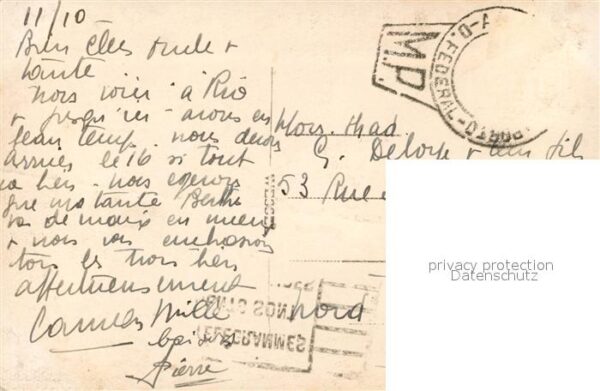 11/10
Bien chers oncle &
tante
nous voici à Rio
& jusqu'ici - avons eu
beau temps - nous devons
arriver le 16 si tout
va bien - nous espérons
que ma tante Berthe
va de mieux en mieux
& nous vous embrassons
tous les trois bien
affectueusement
Carmen Mille
baisers
Pierre
Mons. Mad.
G. Delorse & leur fils
53 Rue
Nord
M.P.
D. FEDERAL
PORTO
TELEGRAMMES
privacy protection
Datenschutz